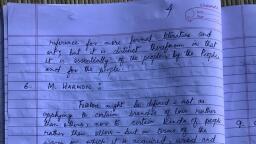 4
reference for more formal literature and
art; but it is distinct therefrom in that
it is essentially of the people, by the people
and for the people.
6. M. HARMON :
Folklore might be defined - not as
applying to certain branches of lore rather
than others, nor to certain kinds of people
rather than others - but in terms of the
in which it is acquired, used and
9.